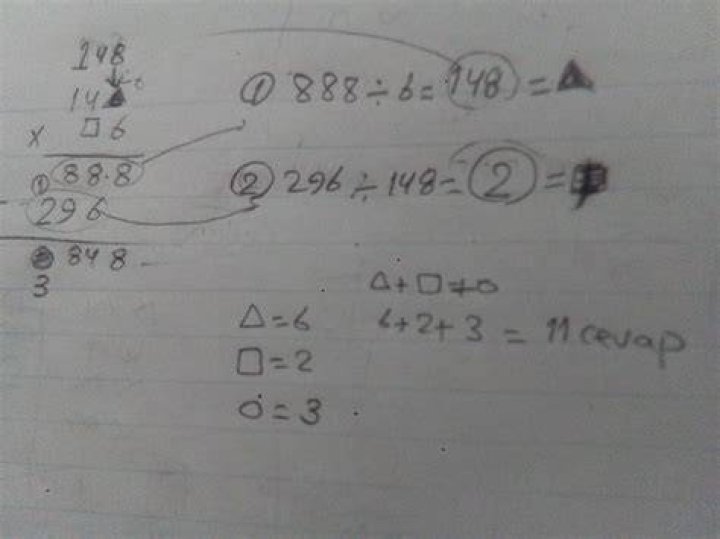 148
14▲
x □6
① 888
296
848
3
① 888÷6=148=▲
② 296÷148=2=■
△+□+o
△=6 6+2+3=11 cevap
□=2
o=3